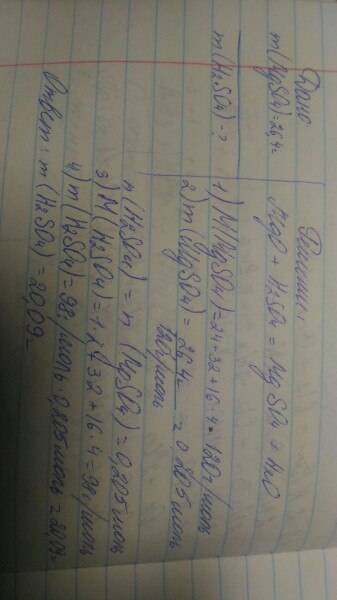 Дано
m(MgSO4)=26,4г
m(H2SO4)-?
Решение:
MgO + H2SO4 = MgSO4 + H2O
1) M(MgSO4)=24+32+16·4=120г/моль
2) m(MgSO4) = 26,4г / 120г/моль = 0,205моль
n(H2SO4) = n(MgSO4)=0,205моль
3) M(H2SO4)=1·2+32+16·4=98г/моль
4) m(H2SO4)=98г/моль·0,205моль=20,09г
Ответ: m(H2SO4)=20,09г